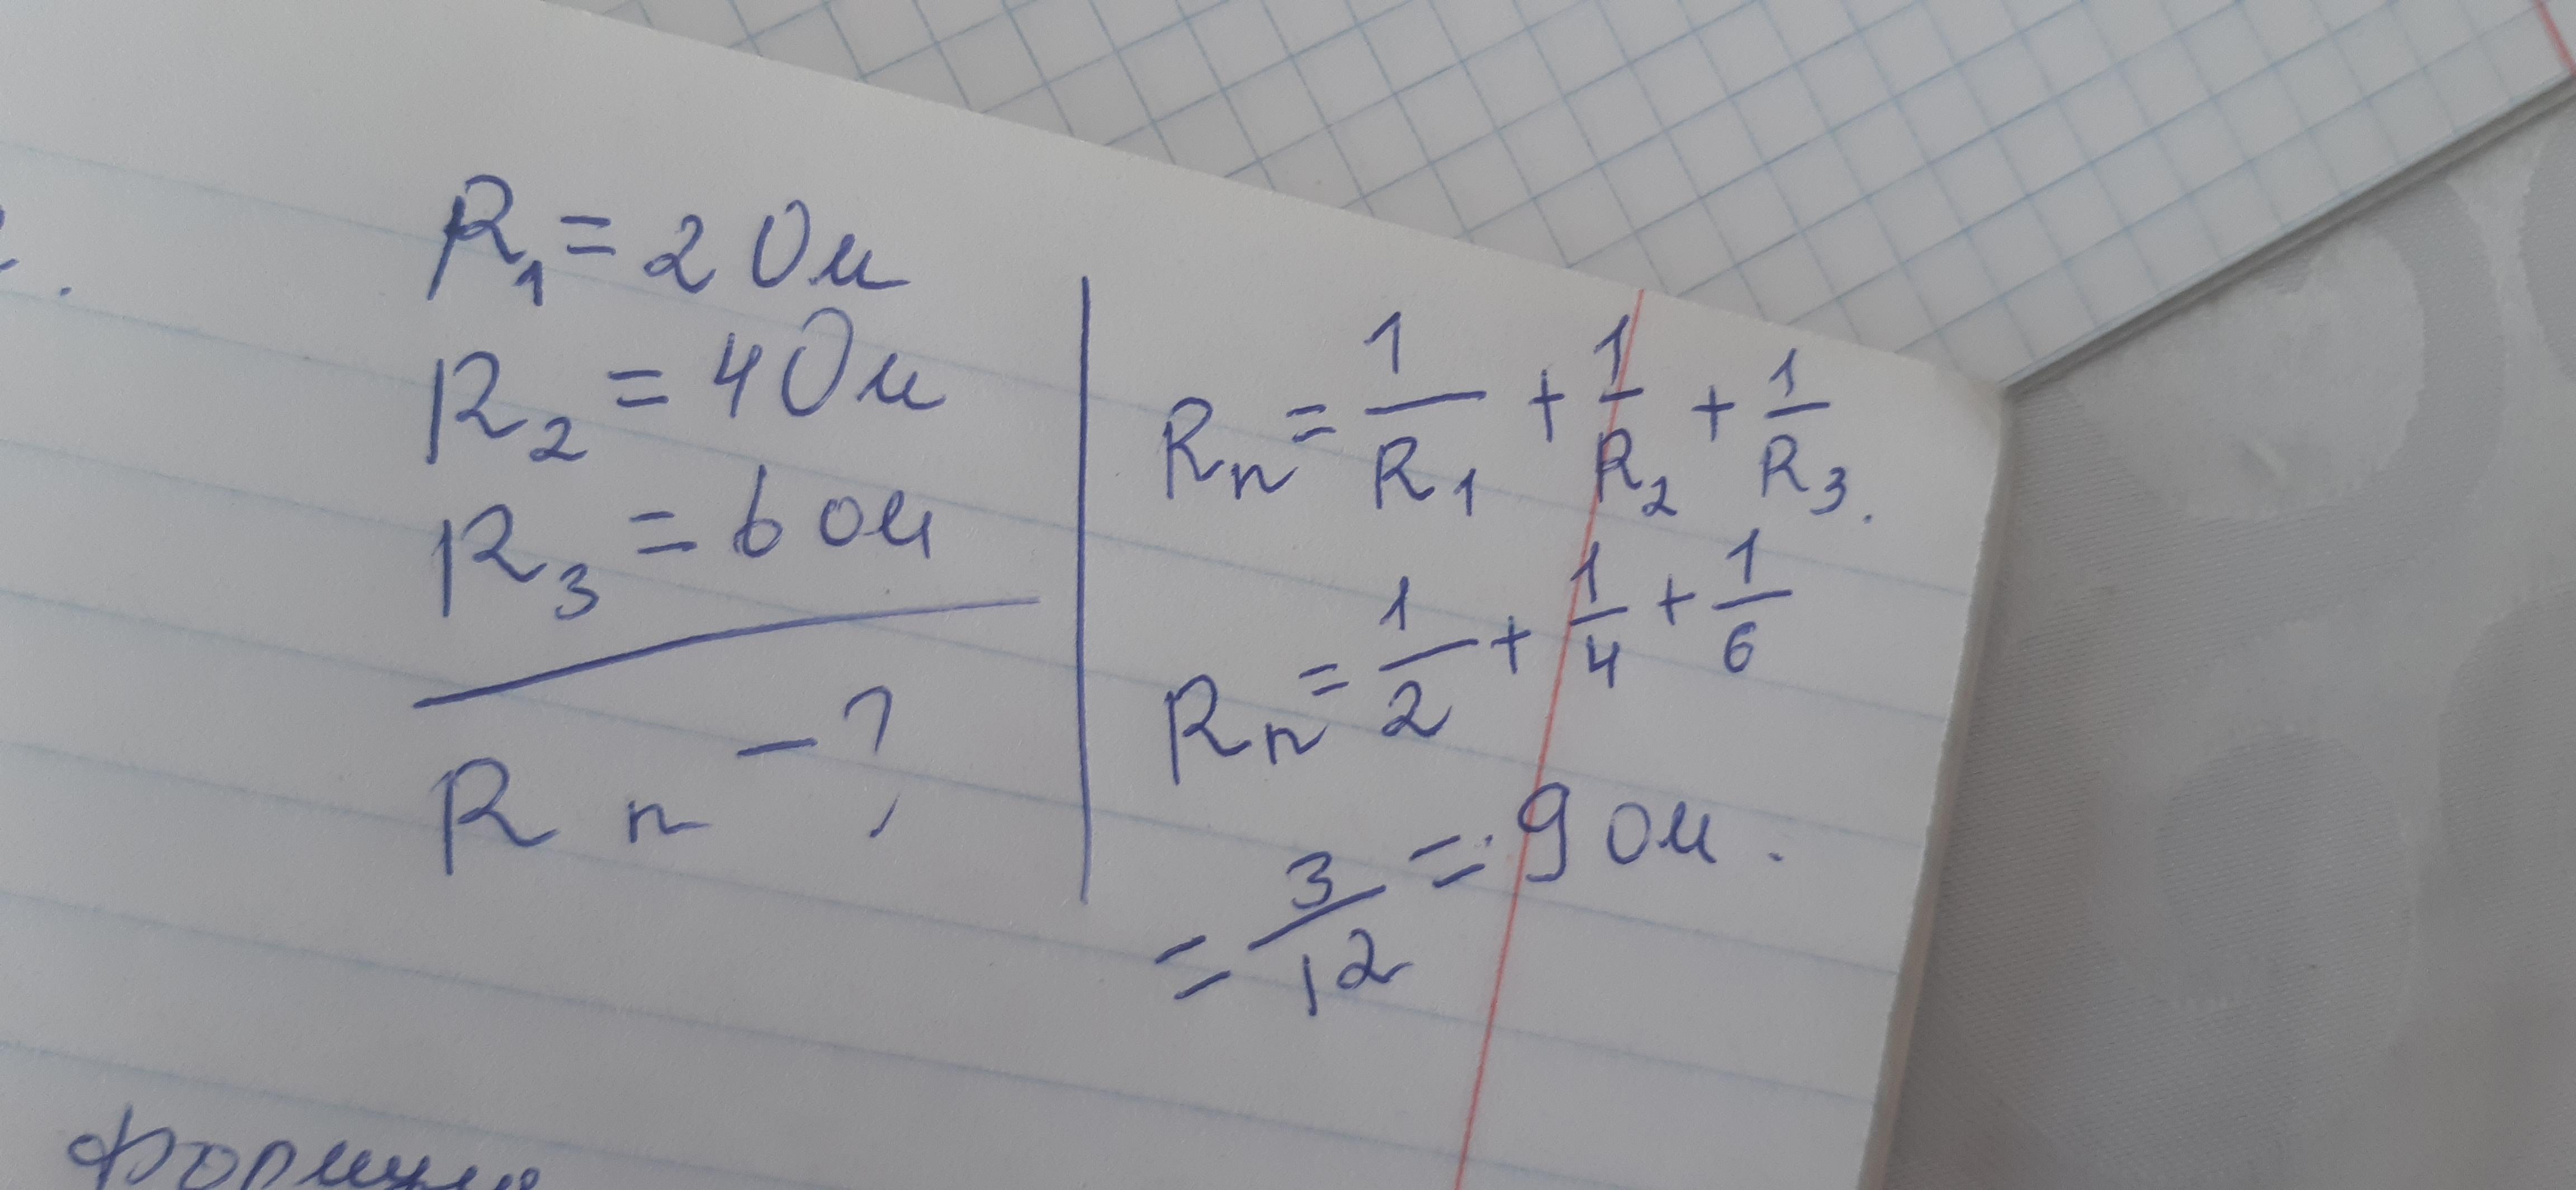 R₁ = 2 Ом
R₂ = 4 Ом
R₃ = 6 ом
R п – ?
Rп = 1/R₁ + 1/R₂ + 1/R₃.
Rп = 1/2 + 1/4 + 1/6
= 3/12 = 9 ом.